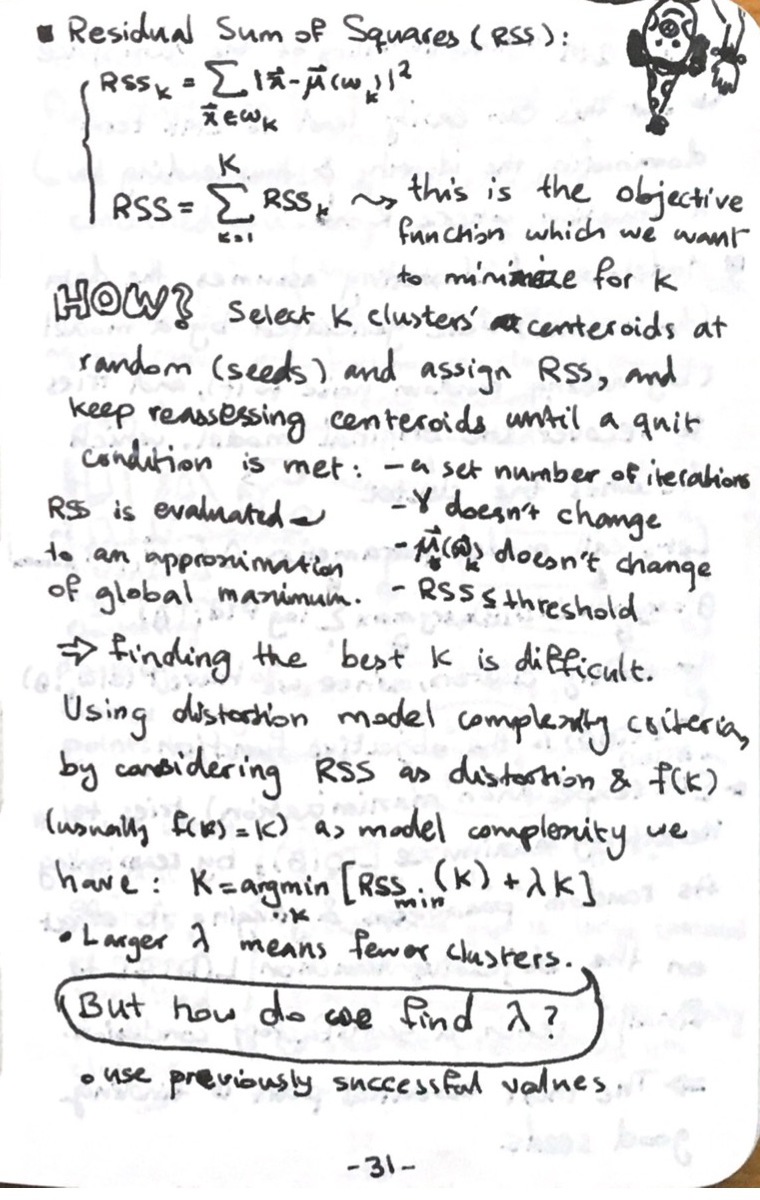 ▪ Residual Sum of Squares (RSS):
RSS_k = ∑_{x⃗∈ω_k} |x⃗ - μ⃗(ω_k)|²
RSS = ∑_{k=1}^{K} RSS_k ⇝ this is the objective
function which we want
to minimize for K
HOW? Select K clusters' centeroids at
random (seeds) and assign RSS and
keep reassessing centeroids until a quit
condition is met: - a set number of iterations
RSS is evaluated - γ doesn't change
to an approximation - μ⃗(ω⃗)_k doesn't change
of global maximum. - RSS ≤ threshold
⇒ finding the best K is difficult.
Using distortion model complexity criteria,
by considering RSS as distortion & f(K)
(usually f(K) = K) as model complexity we
have: K = argmin_K [RSS_min (K) + λK]
• Larger λ means fewer clusters.
But how do we find λ?
• use previously successful values.
-31-